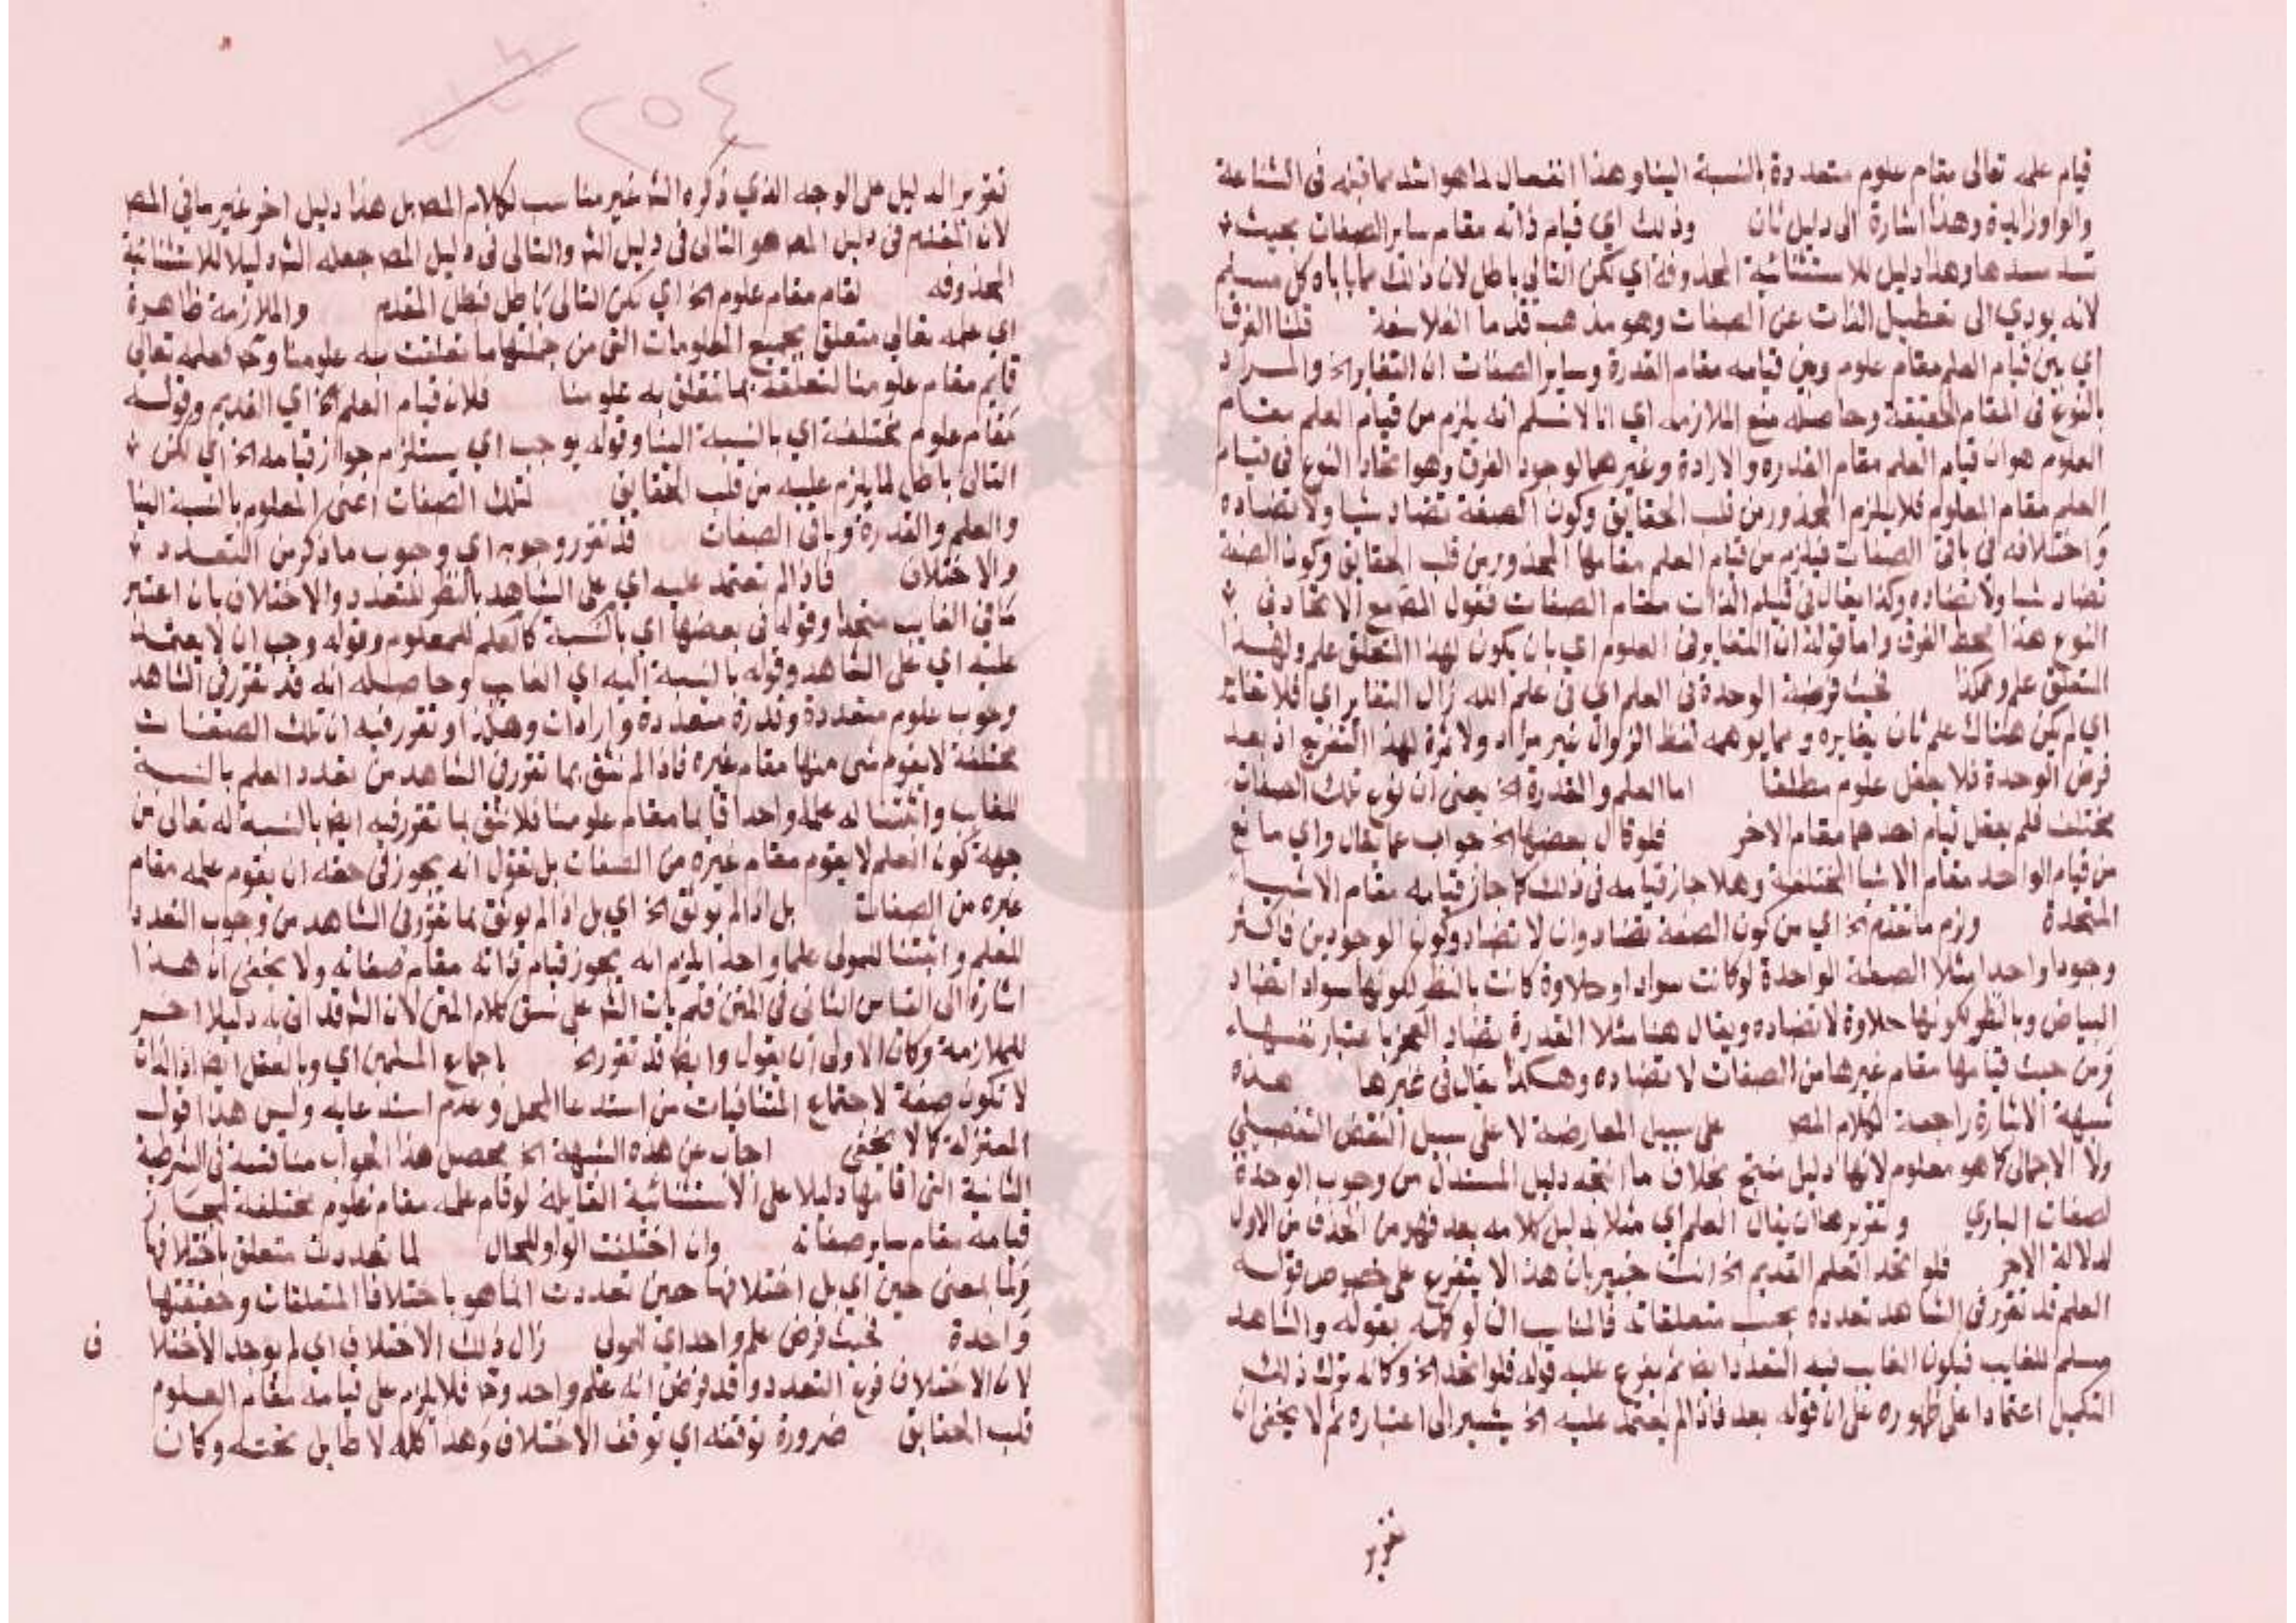 قيام علمه تعالى مقام علوم متعددة بالنسبة الينا وهذا انفصال لما هو اشد مما قبله فى الشناعة
والواو زايدة وهذا اشارة الى دليل ثان وذلك اي قيام ذاته مقام ساير الصفات بحيث
تسد مسدها وهذا دليل للاستثنائية المحذوفة اي لكن التالى باطل لان ذلك مما ياباه كل مسلم
لانه يودي الى تعطيل الذات عن الصفات وهو مذهب قدما الفلاسفة قلنا الفرق
اي بين قيام العلم مقام علوم وبين قيامه مقام القدرة وساير الصفات ان التغاير الخ والمراد
بالنوع فى المقام الحقيقة وحاصله منع الملازمه اي انا لا نسلم انه يلزم من قيام العلم مقام
العلوم هو ان قيام العلم مقام القدره والارادة وغيرهما لوجود الفرق وهو اتحاد النوع فى قيام
العلم مقام العلوم فلا يلزم المحذور من قلب الحقايق وكون الصفة تضاد شيا ولا تضاده
واختلافه فى باقى الصفات فيلزم من قيام العلم مقامها المحذور من قلب الحقايق وكون الصفة
تضاد شيا ولا تضاده وكذا يقال فى قيام الذات مقام الصفات فقول المص مع الاتحاد فى
النوع هذا محط الفرق واما قوله ان التغاير فى العلوم اي بان يكون لهذا المتعلق علم ولهذا
المتعلق علم وهكذا فحيث فرضت الوحدة فى العلم اي فى علم الله زال التغاير اي فلا تغاير
اي لم يكن هناك علم ثان يغايره وما يوهمه لفظ الزوال غير مراد ولا ثمرة لهذا التفريع اذ بعد
فرض الوحدة فلا يعقل علوم مطلقا اما العلم والقدرة الخ يعنى ان نوع تلك الصفات
مختلف فلم يعقل قيام احدهما مقام الاخر فلو قال بعضها الخ جواب عما يقال واي مانع
من قيام الواحد مقام الاشيا المختلفة وهلا جاز قيامه فى ذلك كما جاز قيامه مقام الاشيا
المتحدة ولزم ما تقدم الخ اي من كون الصفة تضاد وان لا تضاد وكون الوجودين فاكثر
وجودا واحدا مثلا الصفة الواحدة لو كانت سوادا وحلاوة كانت بالنظر لكونها سوادا تضاد
البياض وبالنظر لكونها حلاوة لا تضاده ويقال هنا مثلا القدرة تضاد العجز باعتبار نفسها
ومن حيث قيامها مقام غيرها من الصفات لا تضاده وهكذا يقال فى غيرها هذه
شبهة الاشارة راجعة لكلام المص على سبيل المعارضة لا على سبيل النقض التفصيلي
ولا الاجمالى كما هو معلوم لانها دليل منتج بخلاف ما انتجه دليل المستدل من وجوب الوحدة
لصفات الباري وتقريرها ان يقال العلم اي مثلا بدليل كلامه بعد فهو من الحذف من الاول
لدلالة الاخر فلو اتحد العلم القديم الخ انت خبير بان هذا لا يتفرع على خصوص قوله
العلم قد تقرر فى الشاهد تعدده بحسب متعلقاته فالمناسب ان لو كمله بقوله والشاهد
مسلم للغايب فيكون الغايب فيه التعدد ايضا ثم يفرع عليه قوله فلو اتحد الخ وكانه ترك ذلك
التكميل اعتمادا على ظهوره على ان قوله بعد فاذا لم يعتمد عليه الخ يشير الى اعتباره ثم لا يخفى ان
تقرير
تقرير الدليل على الوجه الذي ذكره الشه غير مناسب لكلام المص بل هذا دليل اخر غير ما فى المص
لان المقدم فى دليل المص هو التالى فى دليل الشه والتالى فى دليل المص جعله الشه دليلا للاستثنائية
المحذوفه لقام مقام علوم الخ اي لكن التالى باطل فبطل المقدم والملازمة ظاهرة
اي علمه تعالى متعلق بجميع المعلومات التى من جملتها ما تعلقت به علومنا وح فعلمه تعالى
قايم مقام علومنا لتعلقه بما تتعلق به علومنا فلان قيام العلم الخ اي القديم وقوله
مقام علوم مختلفة اي بالنسبة الينا وقوله يوجب اي يستلزم جواز قيامه الخ اي لكن
التالى باطل لما يلزم عليه من قلب الحقايق لتلك الصفات اعنى المعلوم بالنسبة الينا
والعلم والقدرة وباقى الصفات قد تقرر وجوبه اي وجوب ما ذكر من التعدد
والاختلاف فاذا لم تعتمد عليه اي على الشاهد بالنظر للتعدد والاختلاف بان اعتبر
ما فى الغايب متحدا وقوله فى بعضها اي بالنسبة كالعلم للمعلوم وقوله وجب ان لا يعتمد
عليه اي على الشاهد وقوله بالنسبة اليه اي الغايب وحاصله انه قد تقرر فى الشاهد
وجوب علوم متعددة وقدرة متعددة وارادات وهكذا وتقرر فيه ان تلك الصفات
مختلفة لا يقوم شى منها مقام غيره فاذا لم نثق بما تقرر فى الشاهد من تعدد العلم بالنسبة
للغايب واثبتنا له علما واحدا قايما مقام علومنا فلا نثق بما تقرر فيه ايضا بالنسبة له تعالى من
جهة كون العلم لا يقوم مقام غيره من الصفات بل نقول انه يجوز فى حقه ان يقوم علمه مقام
غيره من الصفات بل اذا لم يوثق الخ اي بل اذا لم يوثق بما تقرر فى الشاهد من وجوب التعدد
للعلم واثبتنا للمولى علما واحدا لزم انه يجوز قيام ذاته مقام صفاته ولا يخفى ان هذا
اشارة الى القياس الثانى فى المتن فلم يات الشه على نسق كلام المتن لان الشه قد اتى به دليلا اخر
للملازمة وكان الاولى ان يقول وايضا قد تقرر الخ باجماع المسلمين اي وبالعقل ايضا اذ الذات
لا تكون صفة لاجتماع المتنافيات من استدعا المحل وعدم استدعايه وليس هذا قول
المعتزلة كما لا يخفى اجاب عن هذه الشبهة الخ محصل هذا الجواب مناقشة فى الشرطية
الثانية التى اقامها دليلا على الاستثنائية القايلة لو قام علمه مقام علوم مختلفة لجاز
قيامه مقام ساير صفاته وان اختلفت الواو للحال لما تعددت متعلق باختلافها
ولما بمعنى حين اي بل اختلافها حين تعددت انما هو باختلاف المتعلقات وحقيقتها
واحدة فحيث فرض علم واحد اي للمولى زال ذلك الاختلاف اي لم يوجد الاختلا ف
لان الاختلاف فرع التعدد وقد فرض انه علم واحد وح فلا يلزم على قيامه مقام العلوم
قلب الحقايق ضرورة توقفه اي توقف الاختلاف وهذا كله لا طايل تحته وكان